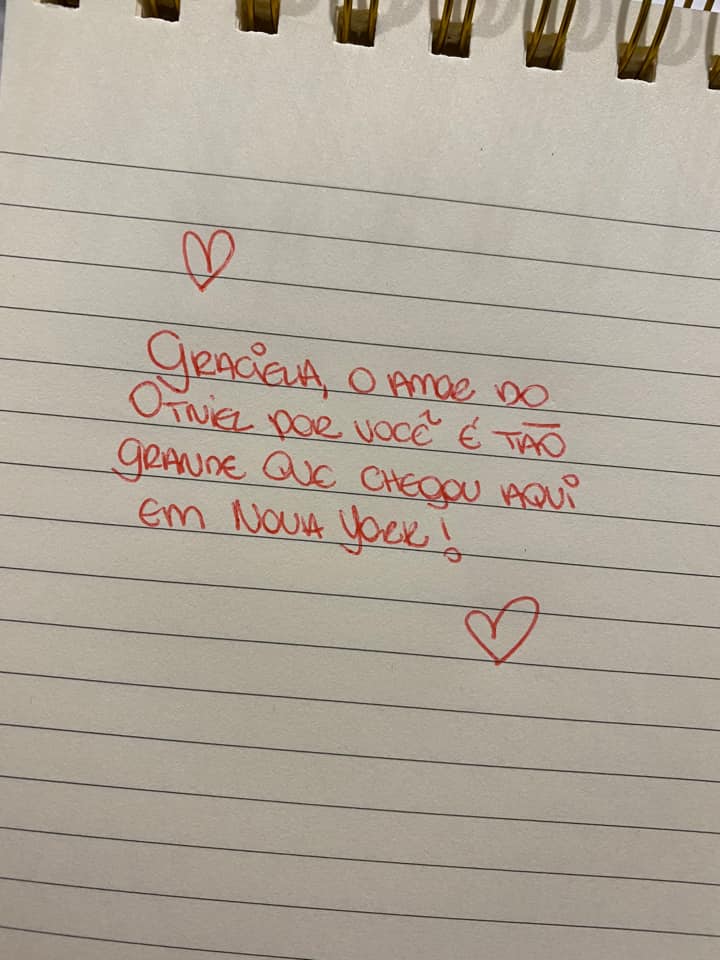 GRACIELA, O AMOR DO
OTNIEL POR VOCÊ É TÃO
GRANDE QUE CHEGOU AQUI
EM NOVA YORK!